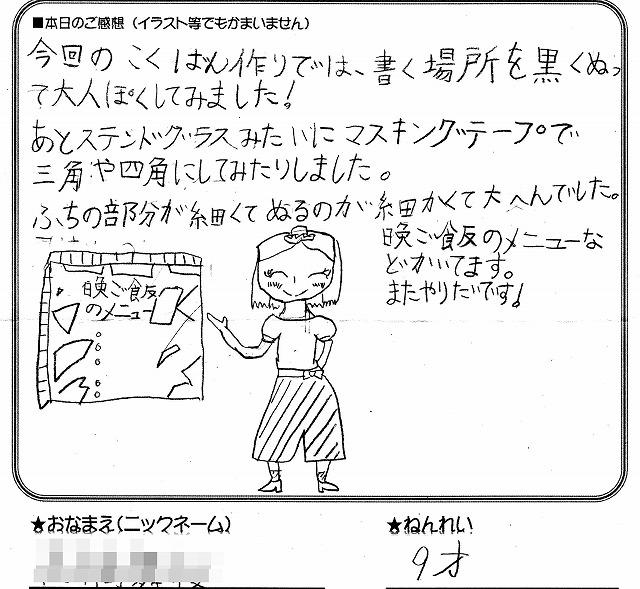 ■本日のご感想（イラスト等でもかまいません）
今回のこくばん作りでは、書く場所を黒くぬっ
て大人ぽくしてみました!
あとステンドグラスみたいにマスキングテープで
三角や四角にしてみたりしました。
ふちの部分が細くてぬるのが細かくて大へんでした。
晩ご飯のメニューな
どかいてます。
またやりたいです!
晩ご飯
のメニュー
★おなまえ(ニックネーム)
★ねんれい
9才